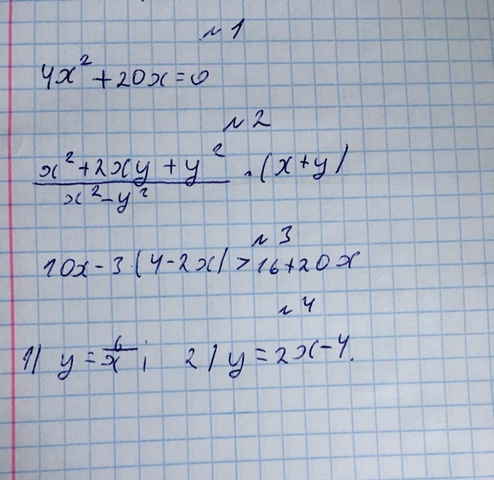 №1
4x² + 20x = 0
№2
x² + 2xy + y²
───────── · (x + y)
x² - y²
№3
10x - 3(4 - 2x) > 16 + 20x
№4
1) y = 6/x ; 2) y = 2x - 4.